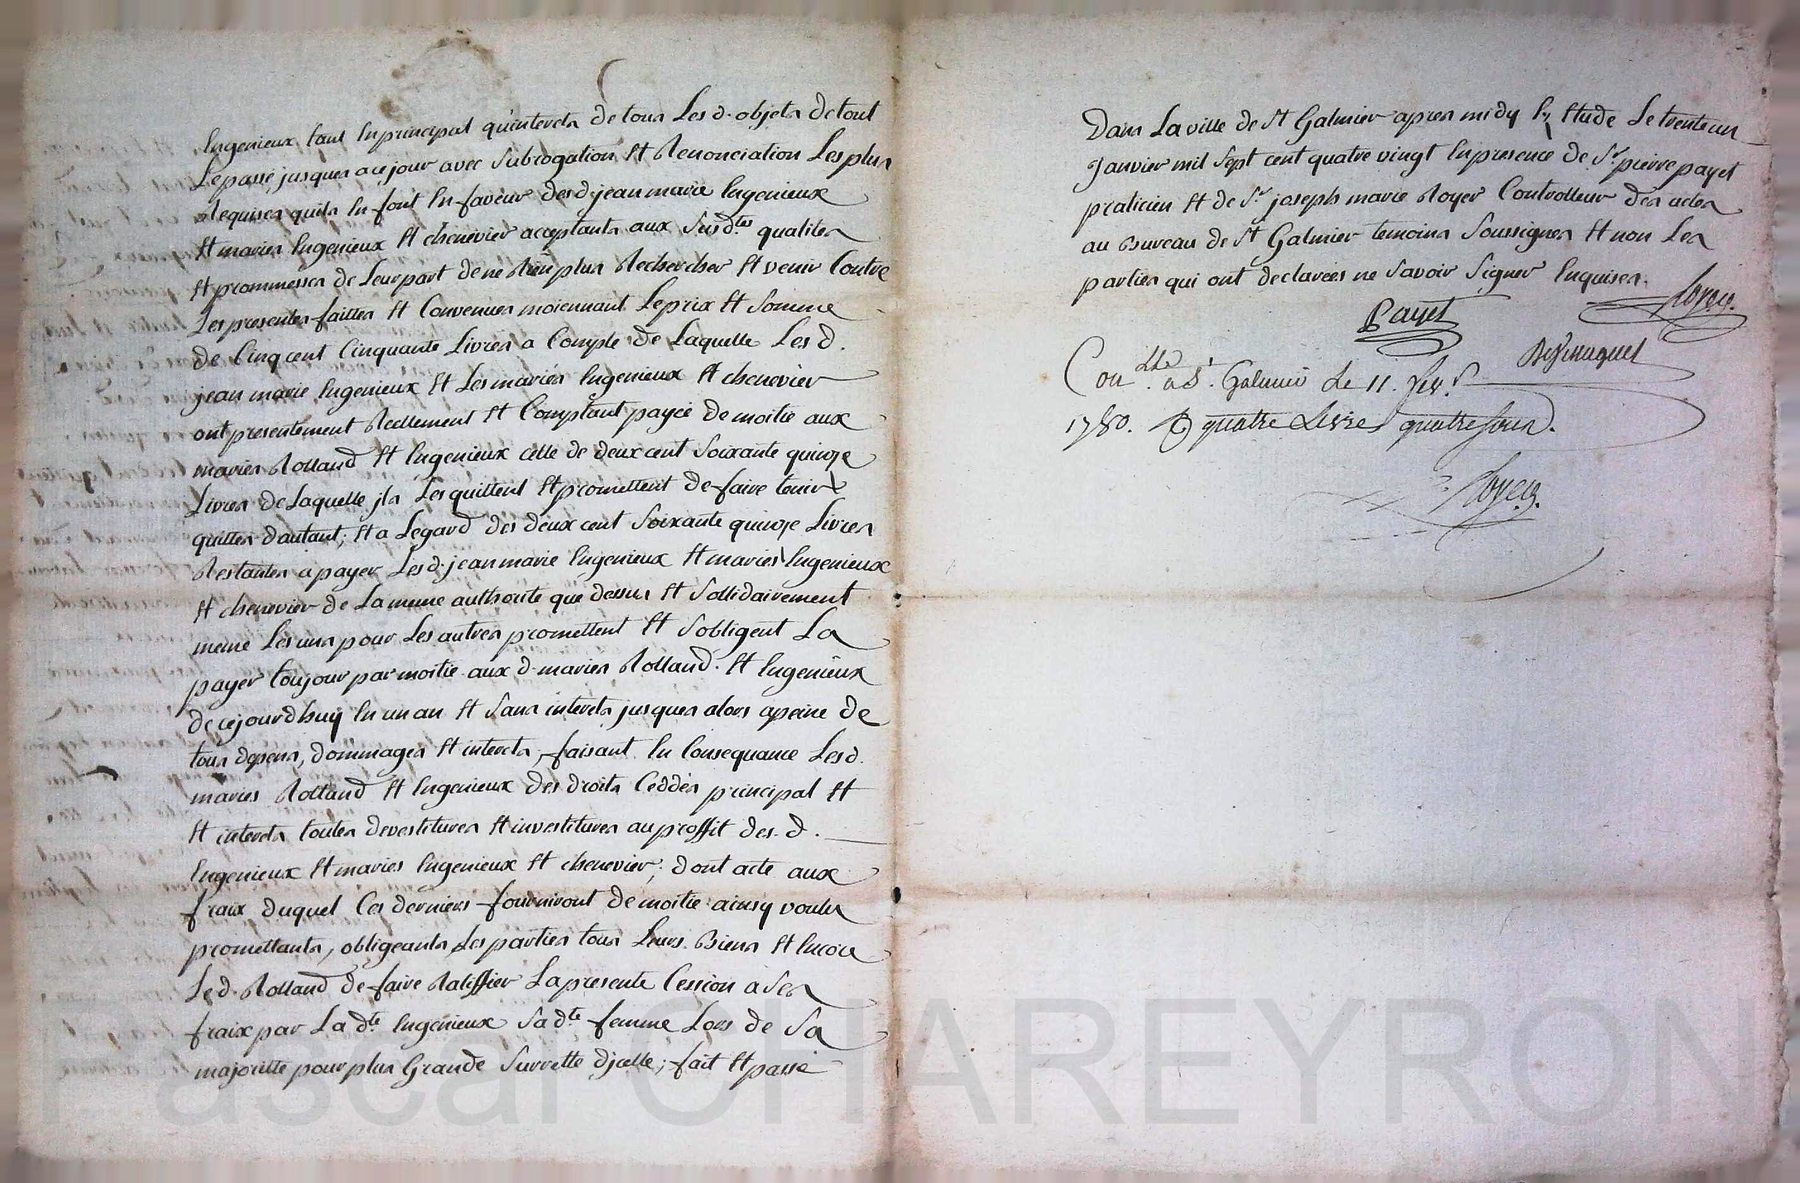 Ingenieux tant en principal qu'interets de tous Les d. objets de tout
Le passé jusques a ce jour avec subrogation et Renonciation Les plus
Requises quils en font en faveur desd. jean marie Ingenieux
et mariés Ingenieux et chenevier acceptants aux susd.tes qualites
et prommesses de Leur part de ne Rien plus Rechercher et venir Contre
Les presentes faittes et Convenues moiennant Le prix et Somme
de Cinq cent Cinquante Livres a Compte de Laquelle Les d.
jean marie Ingenieux et Les mariés Ingenieux et chenevier
ont presentement Reellement et Comptant payée de moitie aux
mariés Rolland et Ingenieux celle de deux cent Soixante quinze
Livres de Laquelle jls Les quittent et promettent de faire tenir
quittes d'autant; et a Legard des deux cent Soixante quinze Livres
Restantes a payer Les d. jean marie Ingenieux et mariés Ingenieux
et chenevier de La meme authorite que dessus et Sollidairement
meme Les uns pour Les autres promettent et S'obligent La
payer toujour par moitie aux d. mariés Rolland et Ingenieux
de cejourdhuy en un an et Sans interets jusques alors apeine de
tous depens, dommages et interets, faisant en Consequance Les d.
mariés Rolland et Ingenieux des droits Ceddés principal et
et interets toutes devestitures et investitures au proffit des. d.
Ingenieux et mariés Ingenieux et chenevier; dont acte aux
fraix duquel Ces derniers fourniront de moitie ainsy voulu
promettants, obligeants Les parties tous Leurs Biens et encore
Le d. Rolland de faire Ratiffier La presente Cession a Ses
fraix par La d.te Ingenieux Sa d.te femme Lors de Sa
majoritte pour plus Grande Surrette d'jcelle; fait et passé
Dans La ville de St Galmier apres midy en Etude Le trente un
Janvier mil Sept cent quatre vingt en presence de Sr. pierre payet
praticien et de Sr. joseph marie Royer Controlleur des actes
au Bureau de St Galmier temoins Soussignes et non Les
parties qui ont declarées ne Savoir Signer Enquises.
Payet Royer.
Con.llé a St. Galmier Le 11. fev.r
1780. R quatre Livres quatre sous.
Royer.
Pascal CHAREYRON